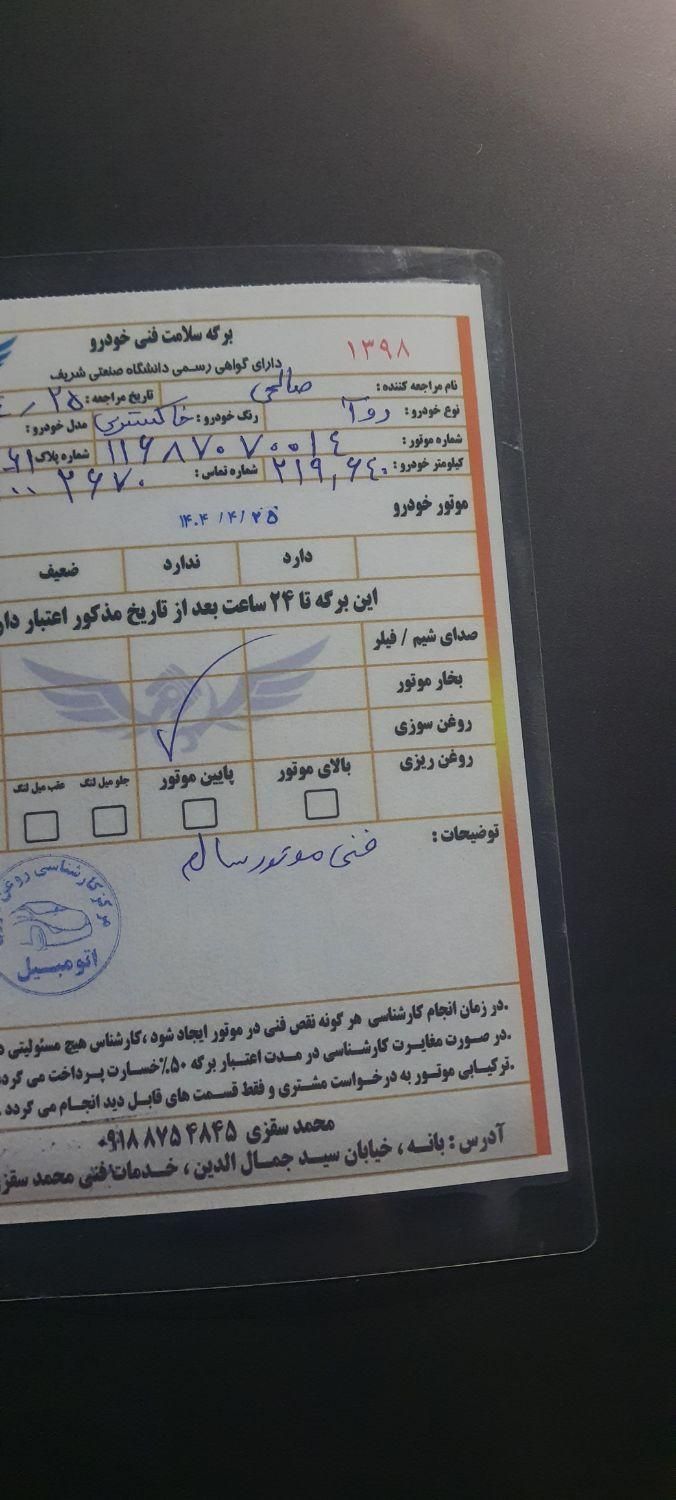 برگه سلامت فنی خودرو
۱۳۹۸
دارای گواهی رسمی دانشگاه صنعتی شریف
نام مراجعه کننده : صالحی تاریخ مراجعه : ۲۵
نوع خودرو : روآ رنگ خودرو : خاکستری مدل خودرو :
شماره موتور : ۱۱۶۸۷۰۷۰۰۱۴ شماره پلاک
کیلومتر خودرو : ۲۱۹,۶۴۰ شماره تماس : ۲۶۷۰
موتور خودرو ۱۴۰۴/۴/۲۵
دارد ندارد ضعیف
این برگه تا ۲۴ ساعت بعد از تاریخ مذکور اعتبار
صدای شیم / فیلر
بخار موتور
روغن سوزی
روغن ریزی بالای موتور پایین موتور جلو میل لنگ عقب میل لنگ
توضیحات : فنی موتور سالم
مرکز کارشناسی روغن
اتومبیل
.در زمان انجام کارشناسی هر گونه نقص فنی در موتور ایجاد شود ،کارشناس هیچ مسئولیتی
.در صورت مغایرت کارشناسی در مدت اعتبار برگه ۵۰٪خسارت پرداخت می
.ترکیابی موتور به درخواست مشتری و فقط قسمت های قابل دید انجام می گردد .
محمد سقزی ۰۹۱۸ ۸۷۵ ۴۸۴۵
آدرس : بانه ، خیابان سید جمال الدین ، خدمات فنی محمد